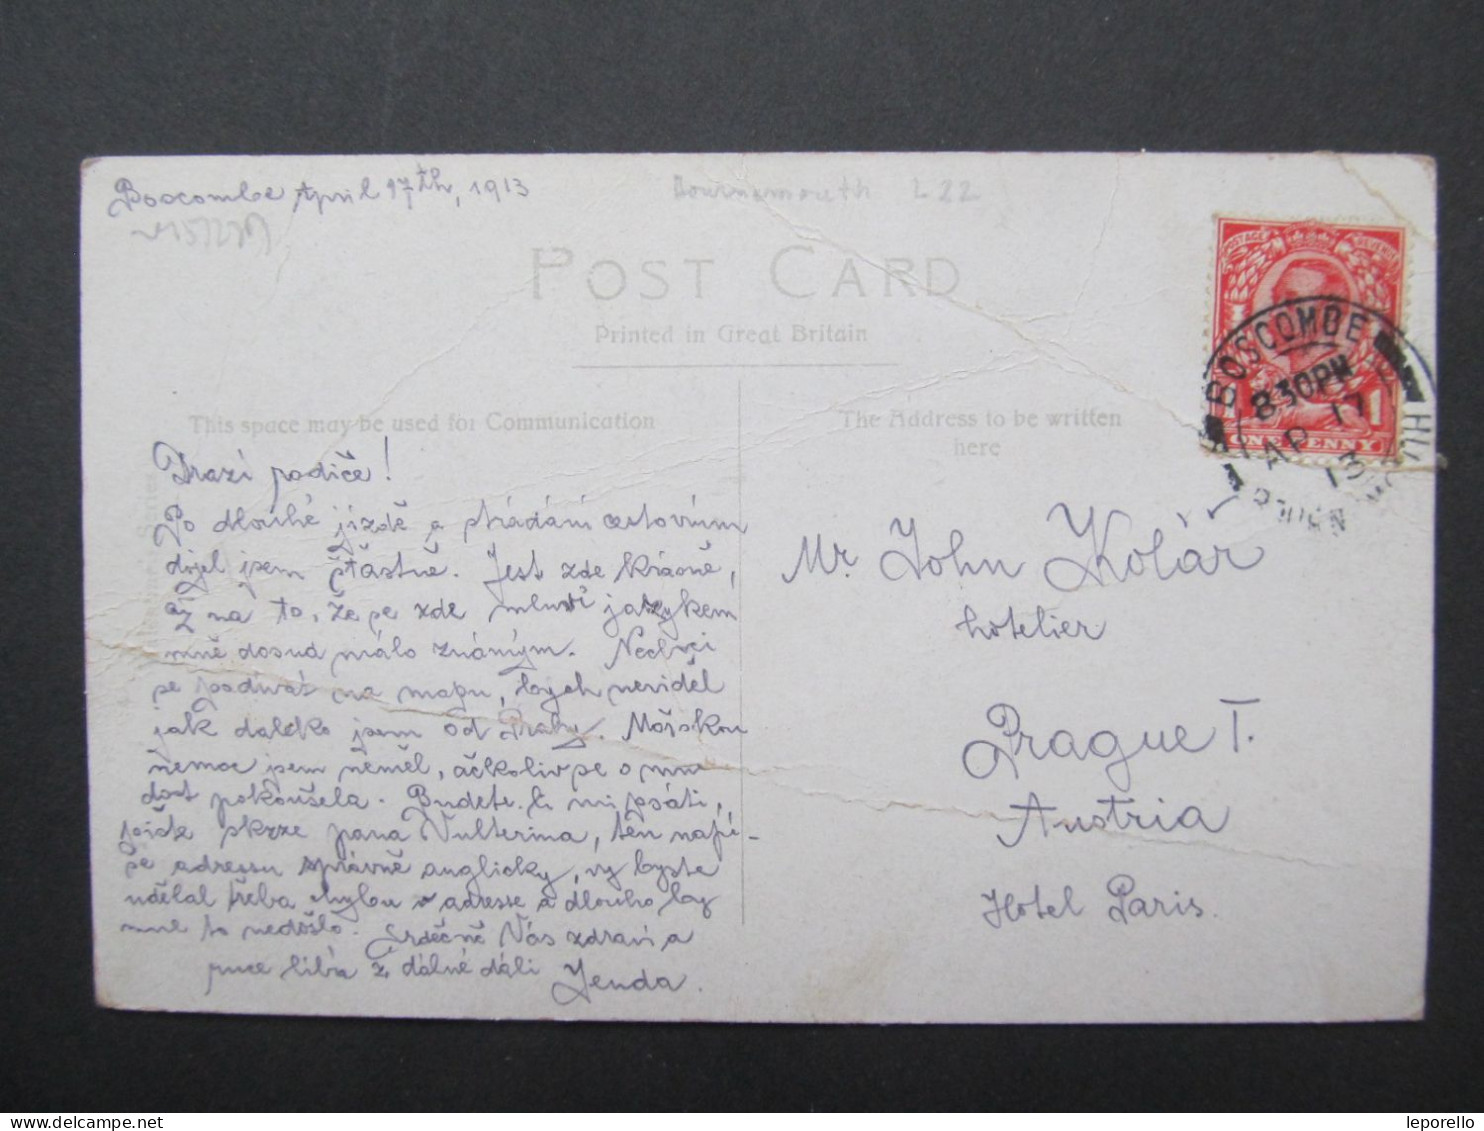 Boscombe April 17th, 1913
Bournemouth L 22
POST CARD
Printed in Great Britain
This space may be used for Communication
The Address to be written
here
Drazí rodiče!
Po dlouhé jízdě a strádání cestovním
dojel jsem šťastně. Jest zde krásně,
až na to, že se zde mluví jazykem
mně dosud málo známým. Nechci
se podívat na mapu, bych neviděl
jak daleko jsem od Prahy. Mořskou
nemoc jsem neměl, ačkoliv se o mne
dost pokoušela. Budete-li mi psáti,
pište skrze pana Vulterina, ten napí-
še adressu správně anglicky, vy byste
udělal třeba chybu v adresse a dlouho by
mne to nedošlo. Srdečně Vás zdraví a
ruce líbá z dálné dáli Jenda.
Mr. John Kolář
hotelier
Prague I.
Austria
Hotel Paris.
POSTAGE REVENUE
ONE PENNY
1 1
BOSCOMBE
8 30 PM
AP 17
13
BOURNEMOUTH
leporello